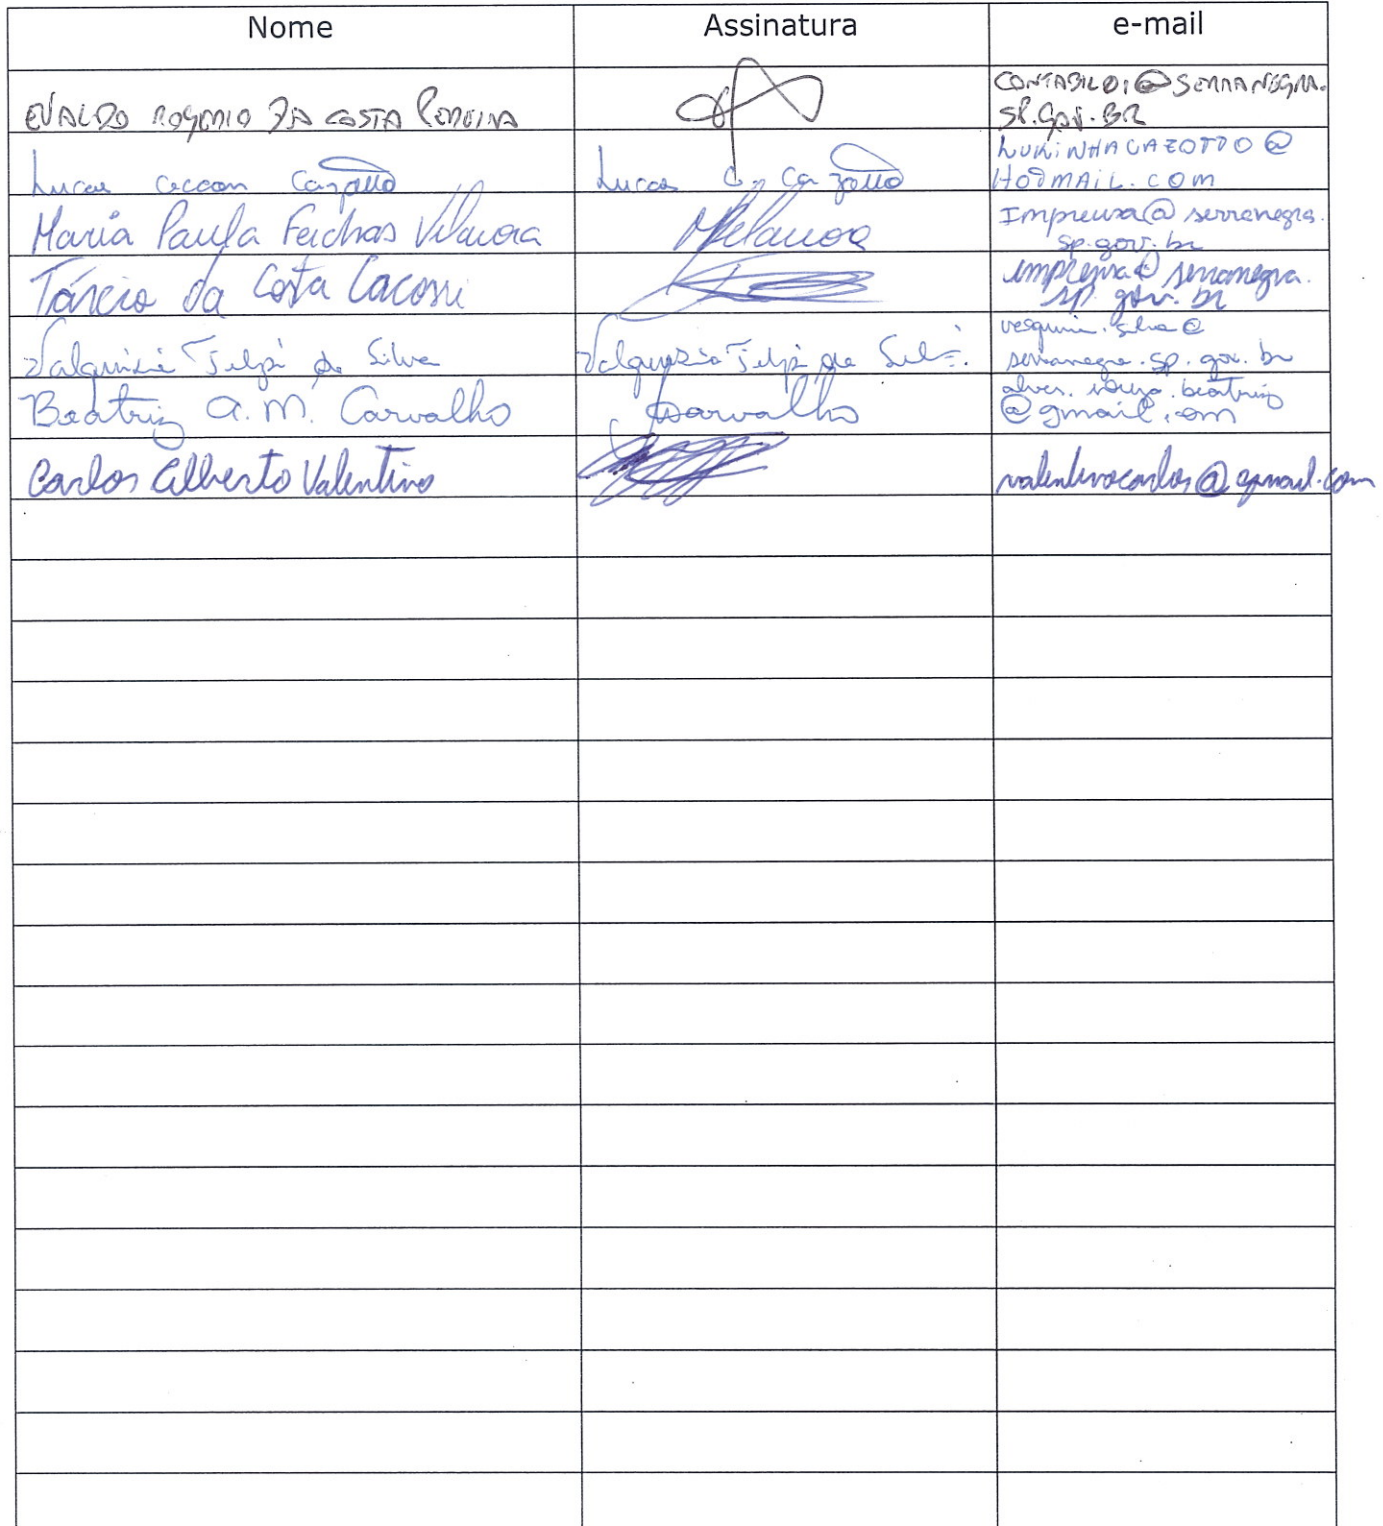 Nome Assinatura e-mail
EVALDO ROGERIO DA COSTA PEREIRA
CONTABIL01@SERRANEGRA.
SP.GOV.BR
Lucas Ceccon Cazotto Lucas C. Cazotto
LUKINHACAZOTTO@
HOTMAIL.COM
Maria Paula Feichas Vilanova
Imprensa@serranegra.
sp.gov.br
Tárcio da Costa Cacossi
imprensa@serranegra.
sp.gov.br
da Silva
silva@
serranegra.sp.gov.br
Beatriz A. M. Carvalho Carvalho
alves.souza.beatriz
@gmail.com
Carlos Alberto Valentino
valentinocarlos@gmail.com